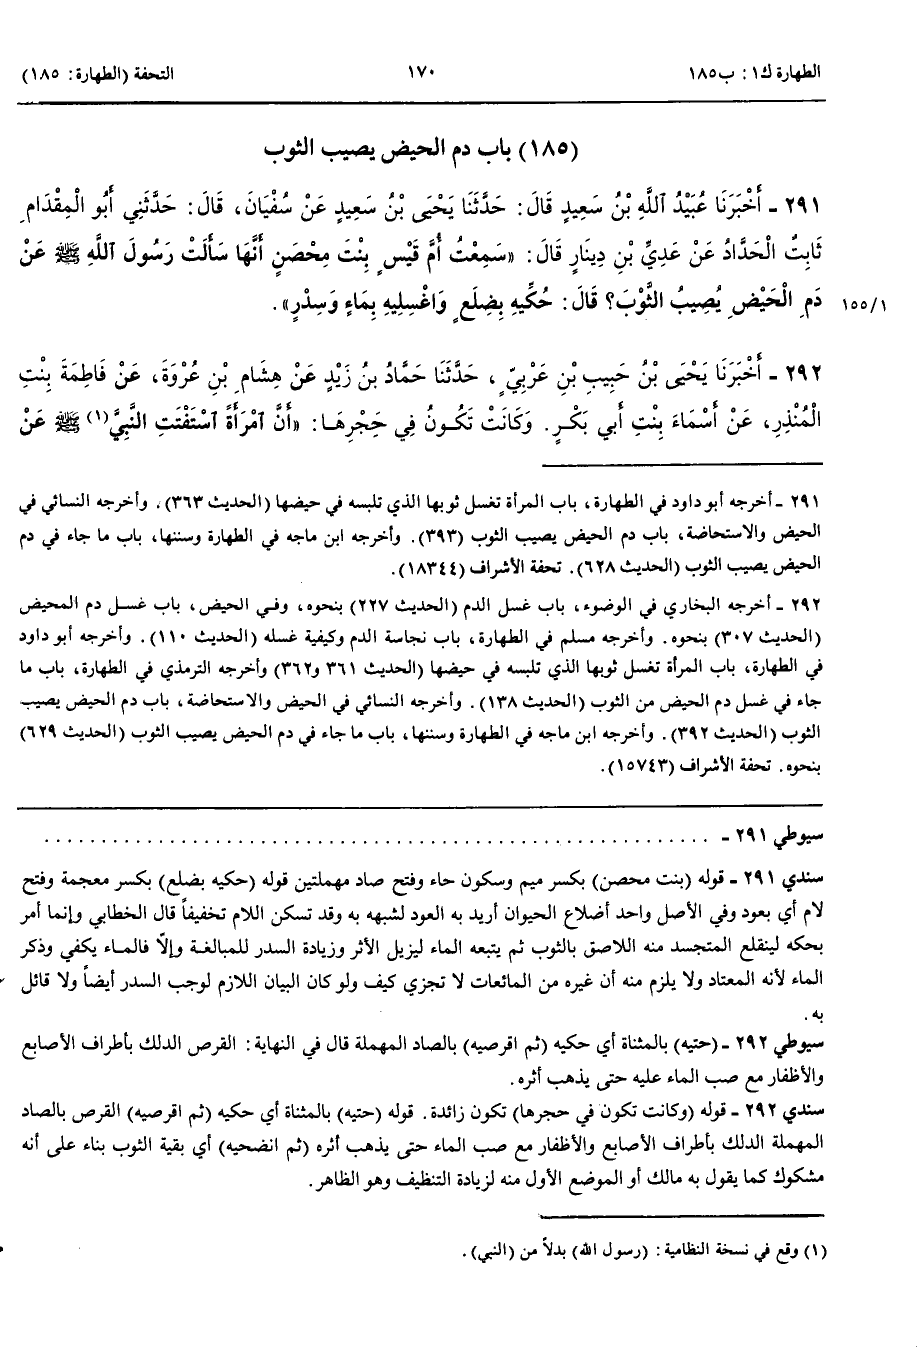 الطهارة ك١: ب١٨٥
١٧٠
التحفة (الطهارة: ١٨٥)
(١٨٥) باب دم الحيض يصيب الثوب
٢٩١ ـ أَخْبَرَنَا عُبَيْدُ ٱللَّهِ بْنُ سَعِيدٍ قَالَ: حَدَّثَنَا يَحْيَى بْنُ سَعِيدٍ عَنْ سُفْيَانَ، قَالَ: حَدَّثَنِي أَبُو الْمِقْدَامِ
ثَابِتٌ الْحَدَّادُ عَنْ عَدِيِّ بْنِ دِينَارٍ قَالَ: «سَمِعْتُ أُمَّ قَيْسٍ بِنْتَ مِحْصَنٍ أَنَّهَا سَأَلَتْ رَسُولَ اللَّهِ ﷺ عَنْ
دَمِ الْحَيْضِ يُصِيبُ الثَّوْبَ؟ قَالَ: حُكِّيهِ بِضِلَعٍ وَاغْسِلِيهِ بِمَاءٍ وَسِدْرٍ».
١٥٥/١
٢٩٢ ـ أَخْبَرَنَا يَحْيَى بْنُ حَبِيبِ بْنِ عَرَبِيٍّ، حَدَّثَنَا حَمَّادُ بنُ زَيْدٍ عَنْ هِشَامِ بْنِ عُرْوَةَ، عَنْ فَاطِمَةَ بِنْتِ
الْمُنْذِرِ، عَنْ أَسْمَاءَ بِنْتِ أَبِي بَكْرٍ. وَكَانَتْ تَكُونُ فِي حِجْرِهَا: «أَنَّ ٱمْرَأَةً ٱسْتَفْتَتِ النَّبِيَّ(١) ﷺ عَنْ
٢٩١ ـ أخرجه أبو داود في الطهارة، باب المرأة تغسل ثوبها الذي تلبسه في حيضها (الحديث ٣٦٣). وأخرجه النسائي في
الحيض والاستحاضة، باب دم الحيض يصيب الثوب (٣٩٣). وأخرجه ابن ماجه في الطهارة وسننها، باب ما جاء في دم
الحيض يصيب الثوب (الحديث ٦٢٨). تحفة الأشراف (١٨٣٤٤).
٢٩٢ ـ أخرجه البخاري في الوضوء، باب غسل الدم (الحديث ٢٢٧) بنحوه، وفي الحيض، باب غسل دم المحيض
(الحديث ٣٠٧) بنحوه. وأخرجه مسلم في الطهارة، باب نجاسة الدم وكيفية غسله (الحديث ١١٠). وأخرجه أبو داود
في الطهارة، باب المرأة تغسل ثوبها الذي تلبسه في حيضها (الحديث ٣٦١ و٣٦٢) وأخرجه الترمذي في الطهارة، باب ما
جاء في غسل دم الحيض من الثوب (الحديث ١٣٨). وأخرجه النسائي في الحيض والاستحاضة، باب دم الحيض يصيب
الثوب (الحديث ٣٩٢). وأخرجه ابن ماجه في الطهارة وسننها، باب ما جاء في دم الحيض يصيب الثوب (الحديث ٦٢٩)
بنحوه. تحفة الأشراف (١٥٧٤٣).
سيوطي ٢٩١ ـ . . . . . . . . . . . . . . . . . . . . . . . . . . . . . .
سندي ٢٩١ ـ قوله (بنت محصن) بكسر ميم وسكون حاء وفتح صاد مهملتين قوله (حكيه بضلع) بكسر معجمة وفتح
لام أي بعود وفي الأصل واحد أضلاع الحيوان أريد به العود لشبهه به وقد تسكن اللام تخفيفاً قال الخطابي وإنما أمر
بحكه لينقلع المتجسد منه اللاصق بالثوب ثم يتبعه الماء ليزيل الأثر وزيادة السدر للمبالغة وإلّا فالماء يكفي وذكر
الماء لأنه المعتاد ولا يلزم منه أن غيره من المائعات لا تجزي كيف ولو كان البيان اللازم لوجب السدر أيضاً ولا قائل
به.
سيوطي ٢٩٢ ـ (حتيه) بالمثناة أي حكيه (ثم اقرصيه) بالصاد المهملة قال في النهاية: القرص الدلك بأطراف الأصابع
والأظفار مع صب الماء عليه حتى يذهب أثره.
سندي ٢٩٢ ـ قوله (وكانت تكون في حجرها) تكون زائدة. قوله (حتيه) بالمثناة أي حكيه (ثم اقرصيه) القرص بالصاد
المهملة الدلك بأطراف الأصابع والأظفار مع صب الماء حتى يذهب أثره (ثم انضحيه) أي بقية الثوب بناء على أنه
مشكوك كما يقول به مالك أو الموضع الأول منه لزيادة التنظيف وهو الظاهر.
(١) وقع في نسخة النظامية: (رسول الله) بدلاً من (النبي).